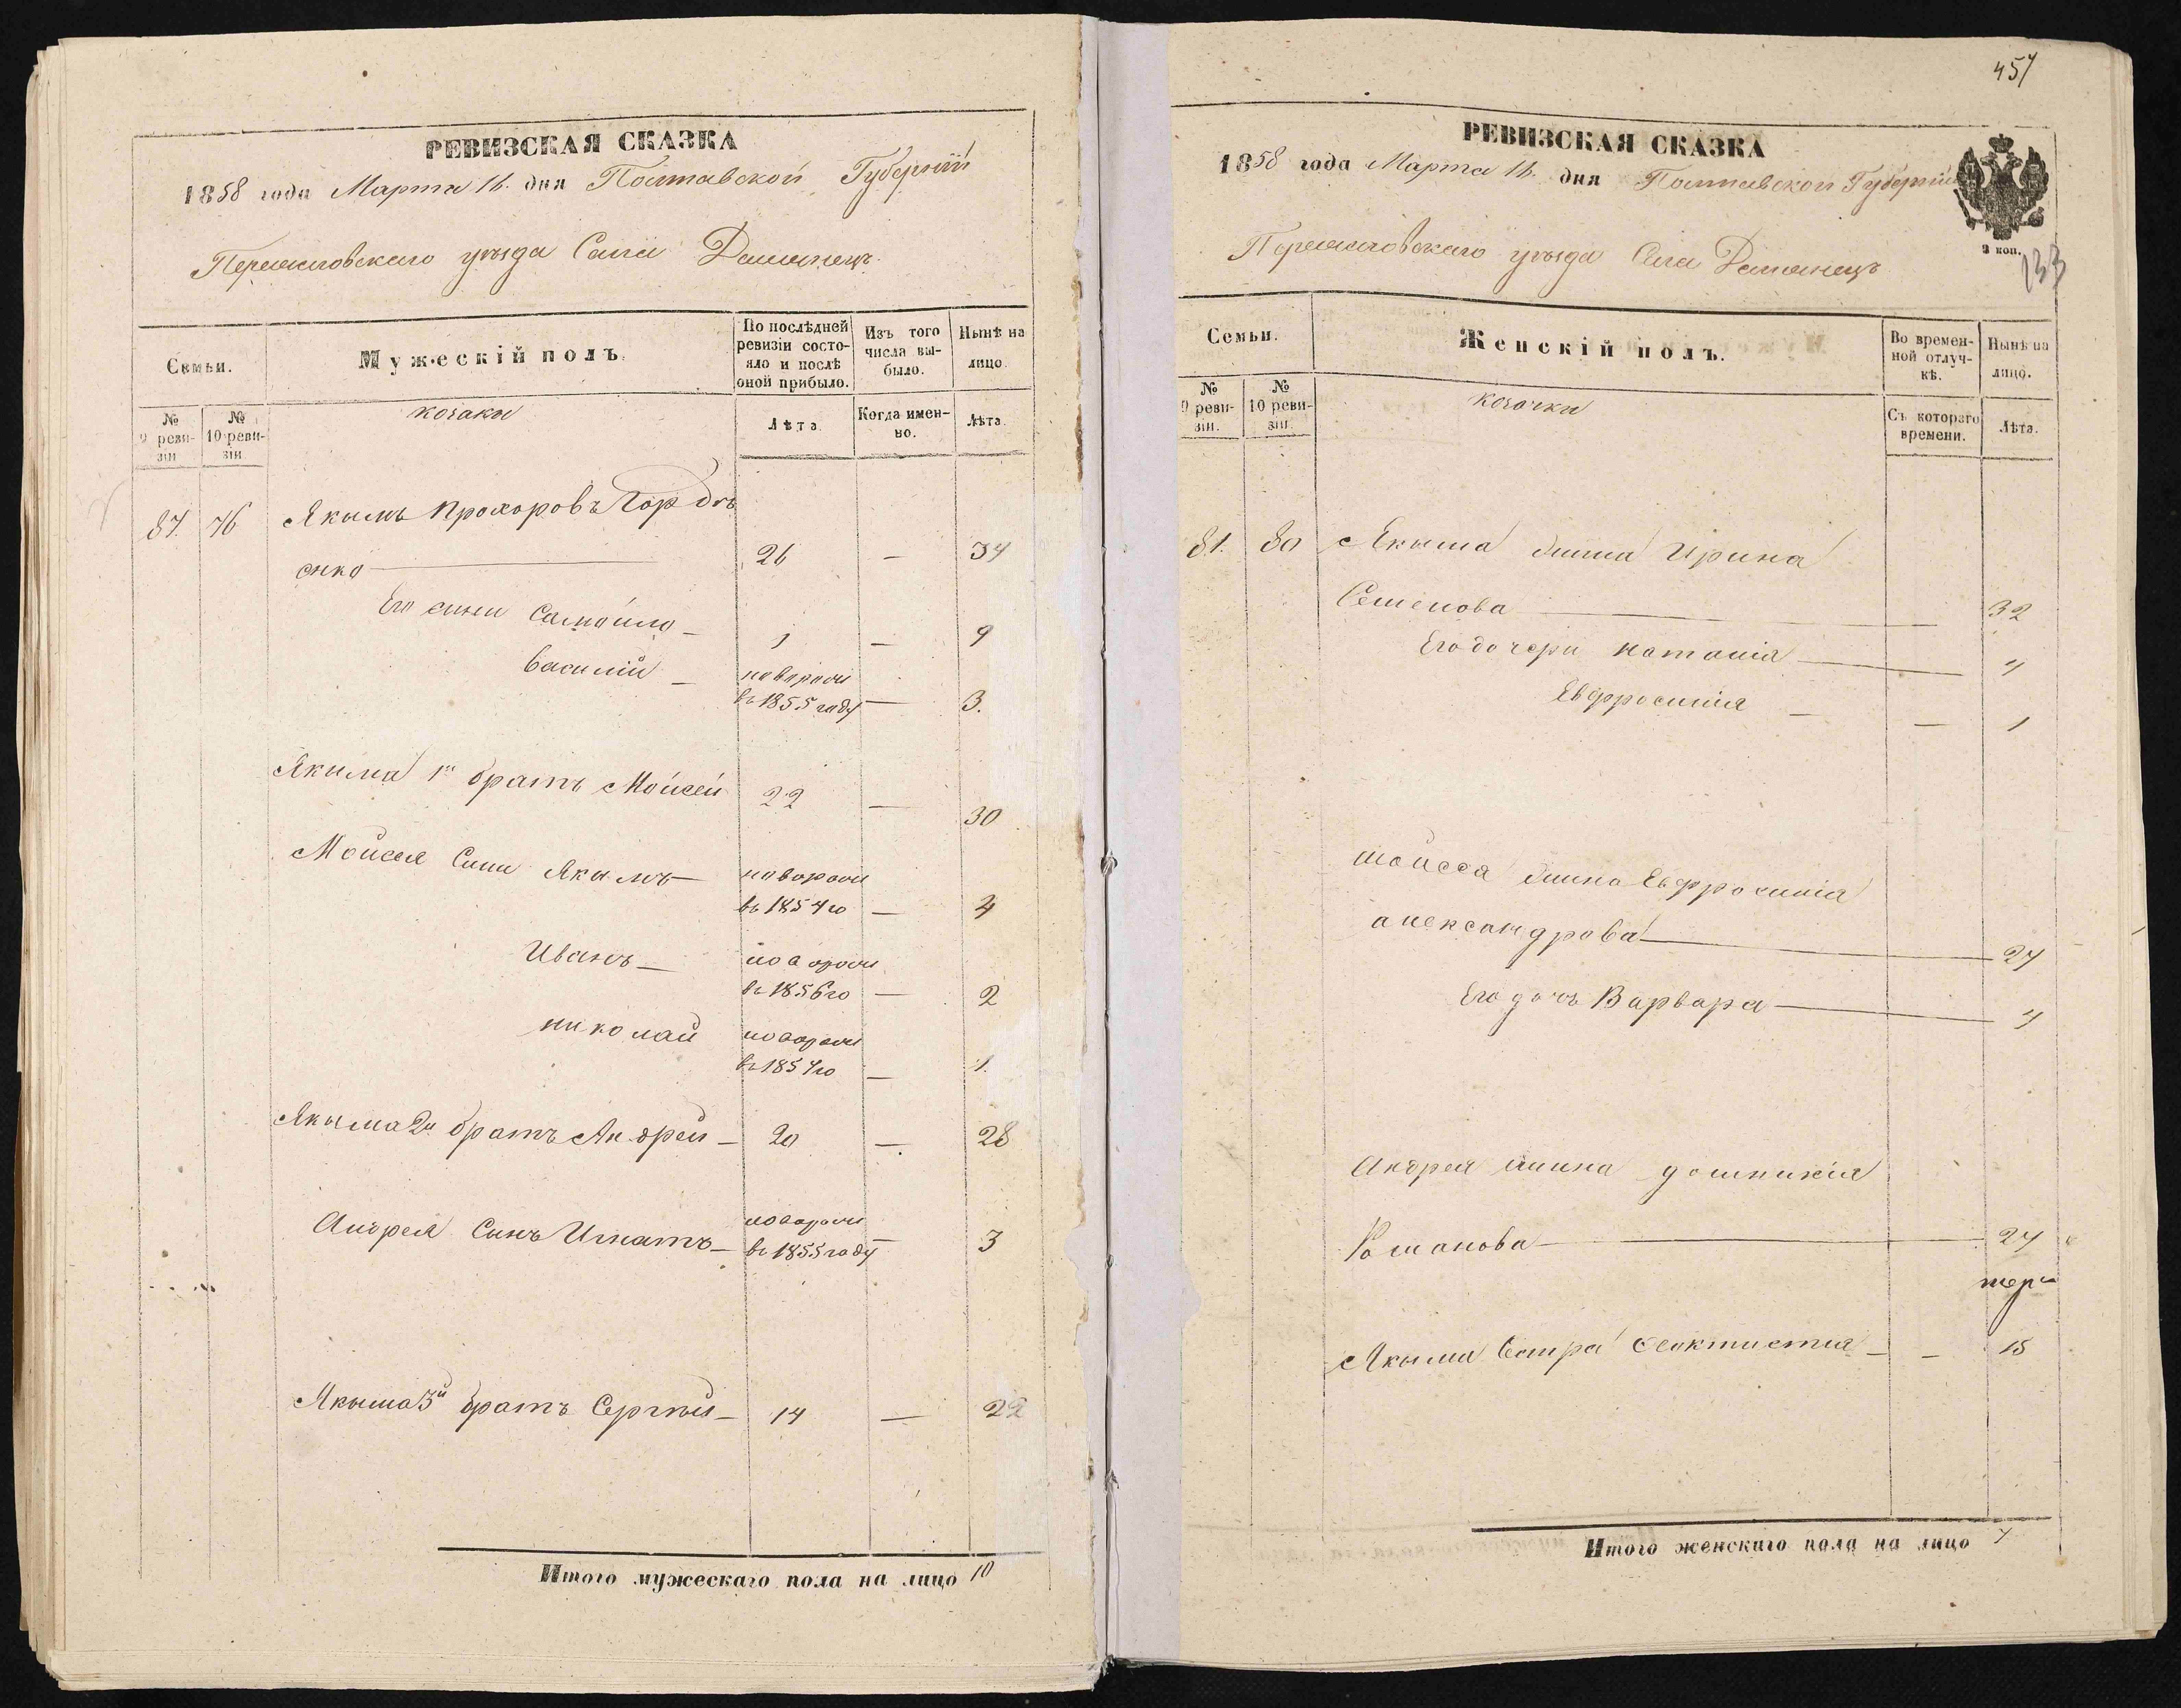 РЕВИЗСКАЯ СКАЗКА
1858 года Марта 16. дня Полтавской Губерніи
Переяславского уѣзда Села Демянецъ
Семьи.
Мужескій полъ.
По послѣдней ревизіи состояло и послѣ оной прибыло.
Изъ того числа выбыло.
Нынѣ на лицо.
№ 9 ревизіи
№ 10 ревизіи
козаки
Лѣта.
Когда именно.
Лѣта.
87. 76 Якымъ Прохоровъ Гордѣ
енко 26 — 34
Его сыни Самойло — 1 — 9
Василій — новорож
въ 1855 году — 3.
Якима 1й братъ Мойсей 22 — 30
Мойсея Сыни Якимъ — новорож
въ 1854 го — 4
Иванъ — новорож
въ 1856 го — 2
николай новорож
въ 1857 го — 1.
Якыма 2й братъ Андрей — 20 — 28
Андрея Сынъ Игнатъ — новорож
въ 1855 году — 3
Якыма 3й братъ Сергѣй — 14 — 22
Итого мужескаго пола на лицо 10
457
РЕВИЗСКАЯ СКАЗКА
1858 года Марта 16. дня Полтавской Губерніи
3 коп.
Переяславскаго уѣзда Села Демянецъ
133
Семьи.
Женскій полъ.
Во временной отлучкѣ.
Нынѣ на лицо.
№ 9 ревизіи.
№ 10 ревизіи.
козачки
Съ котораго времени.
Лѣта.
81. 80 Якыма жина Ирина
Семенова — 32
Его дочери наталія — 4
Евфросинія — — 1
мойсея жина Евфросинія
александрова — 27
Его дочь Варвара — 4
Андрея жина домникія
Романова — 24
Якыма Сестра Феоктистія — — 15
Итого женскаго пола на лицо 7